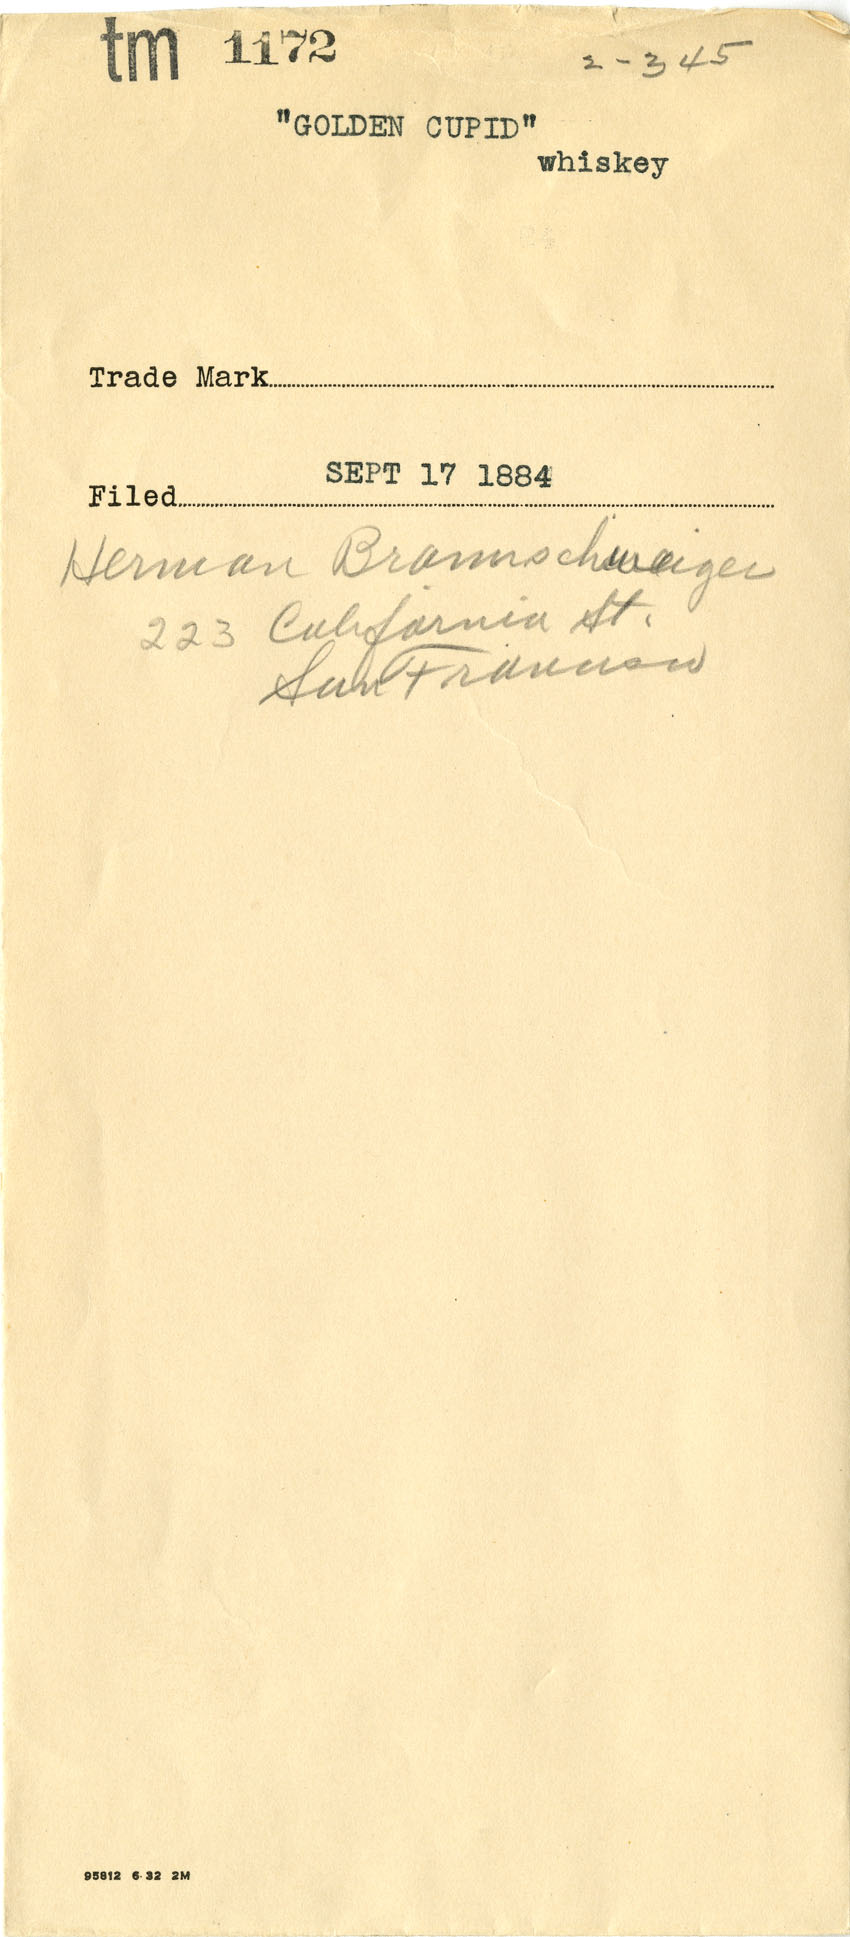 tm 1172 2-345
"GOLDEN CUPID"
whiskey
Trade Mark
SEPT 17 1884
Filed
Herman Braunschweiger
223 California St.
San Francisco
95812 6-32 2M